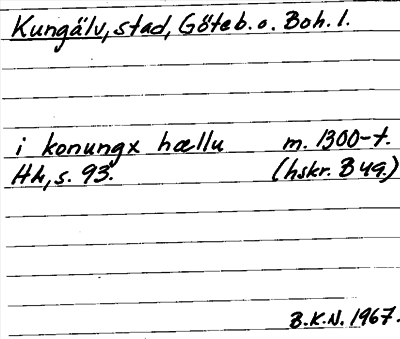 Kungälv, stad, Göteb. o. Boh. l.
i konungx hællu m. 1300-t.
Hh, s. 93. (hskr. B 49.)
B.K.N. 1967.